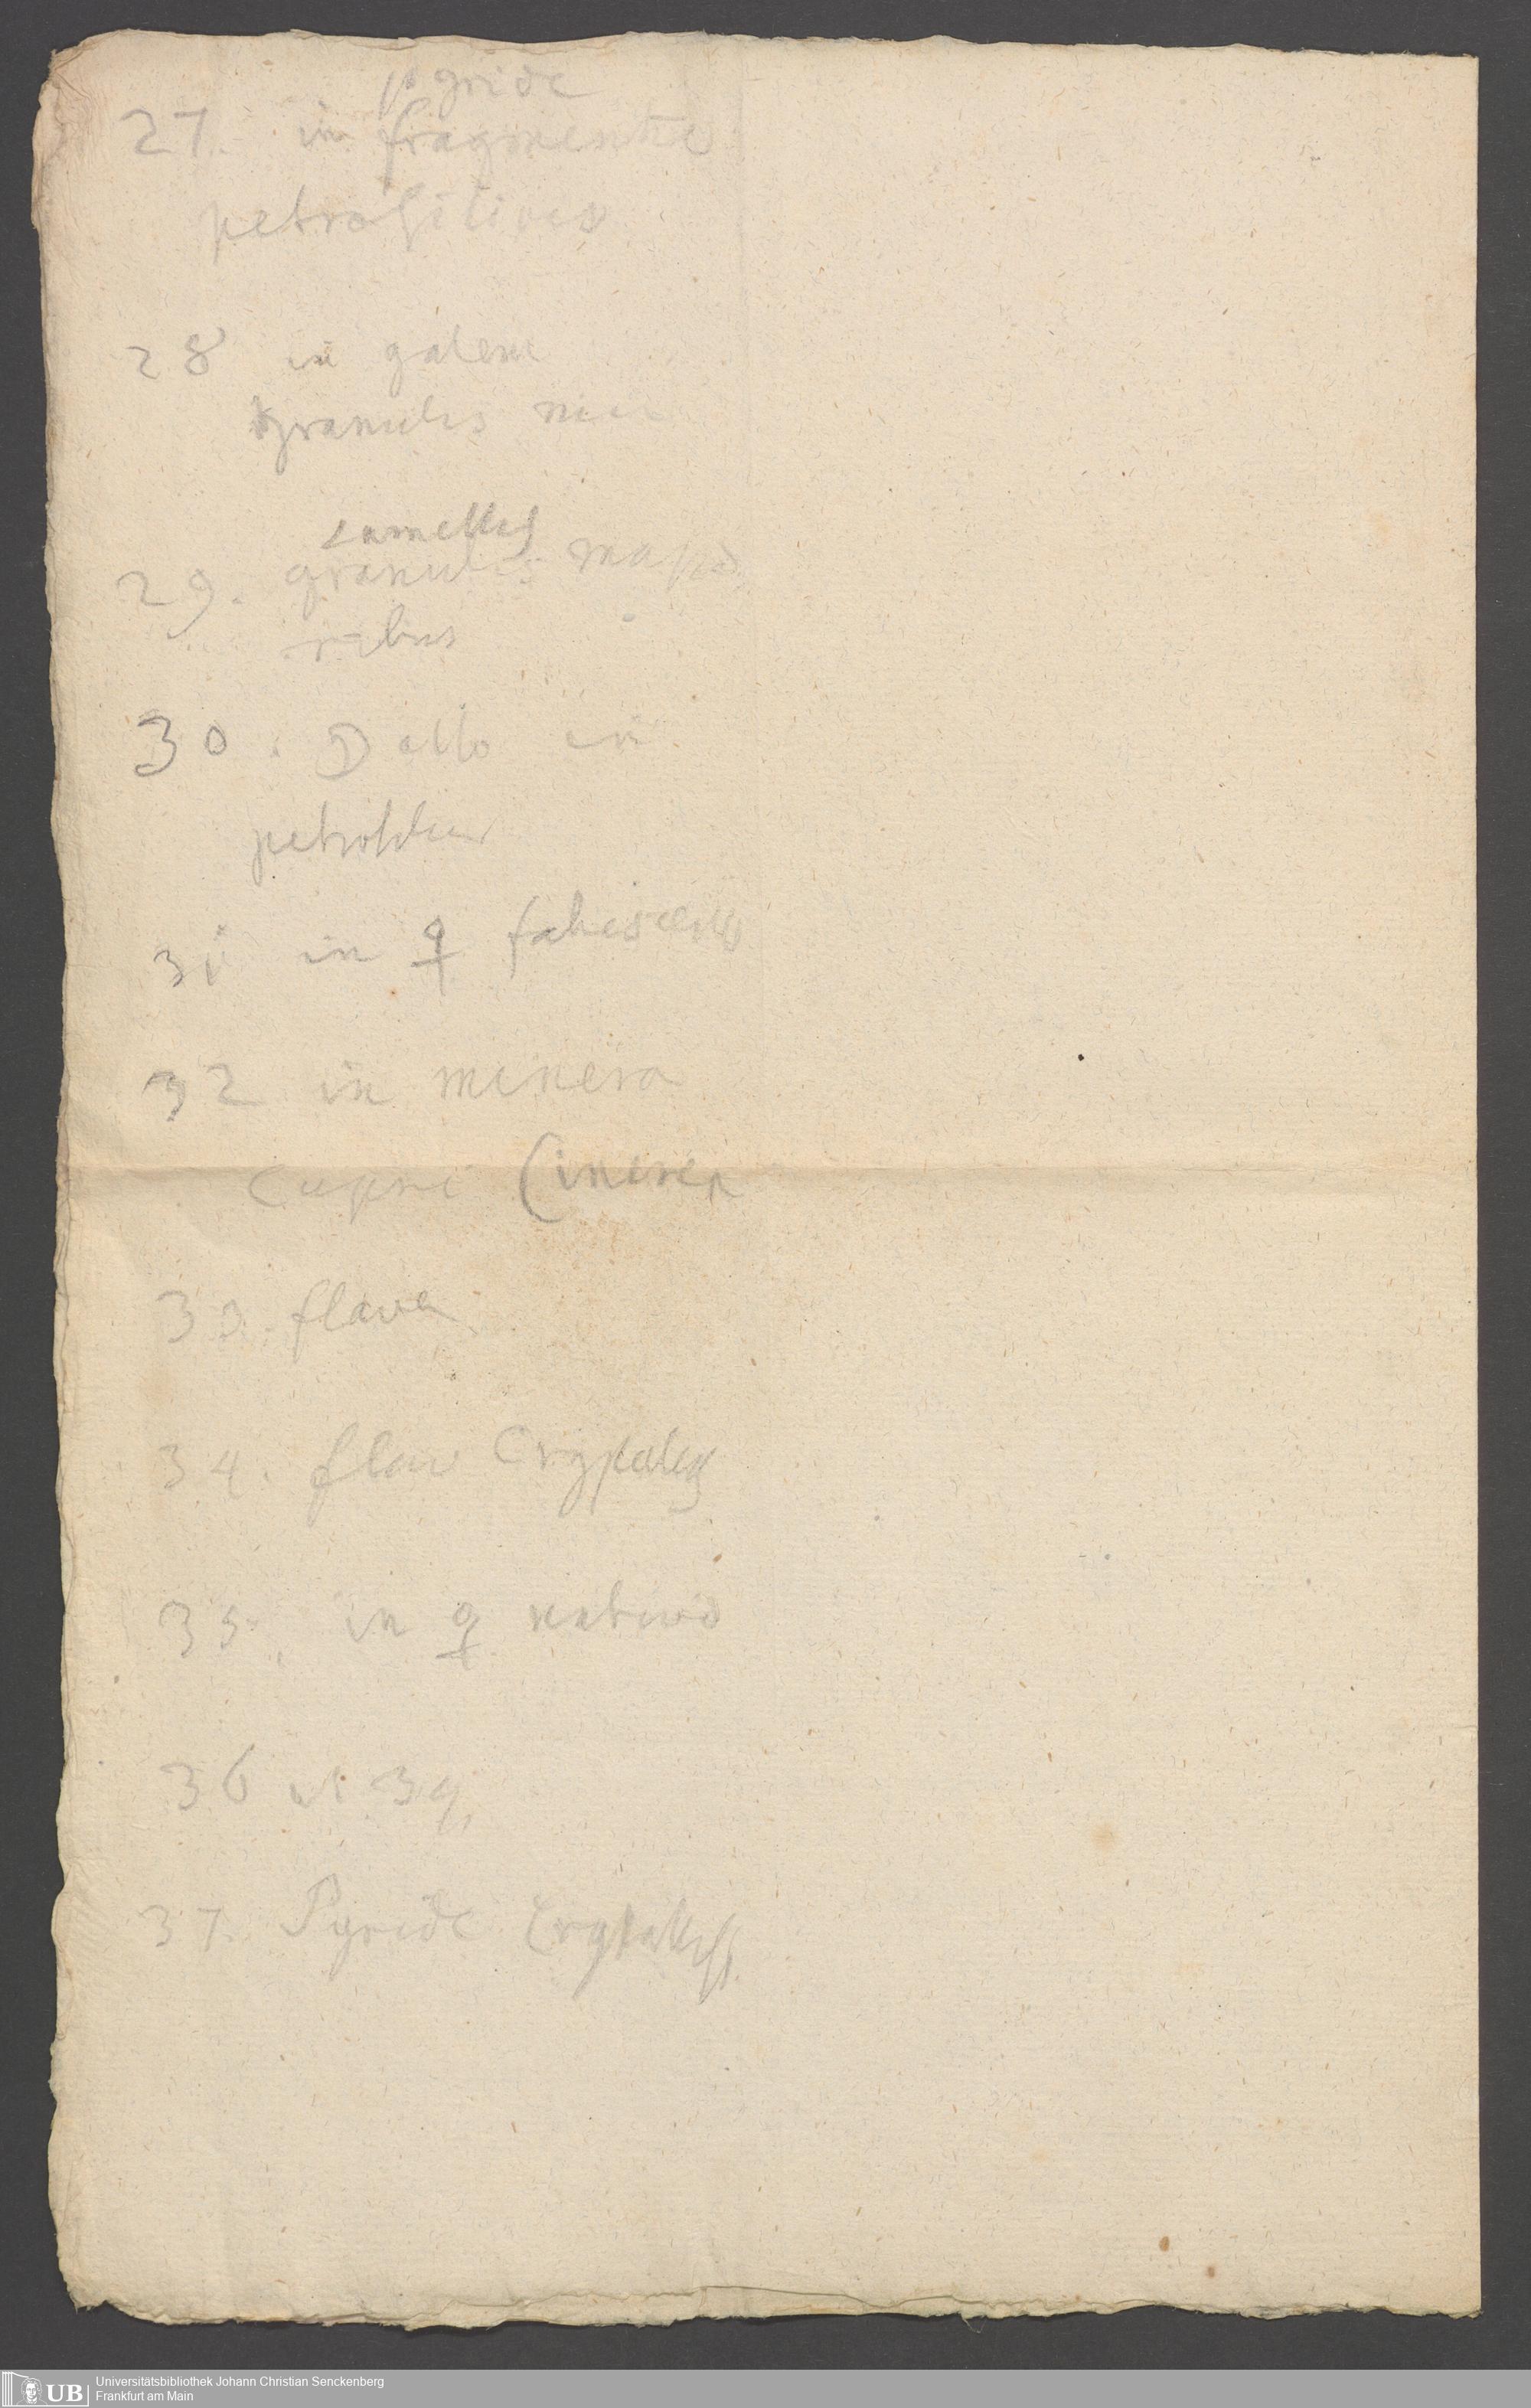 27. in fragmentis
petrosilicis
28 in galena
granulis
lamellis
29. granulis majo
ribus
30. Dallo in
31 in ♀
32 in minera
Cupri Cinerea
33. flava
34. flav Crystalis
35. in ♀ nativo
36 ut 34
37. Pyride Crystallis
UB Universitätsbibliothek Johann Christian Senckenberg
Frankfurt am Main